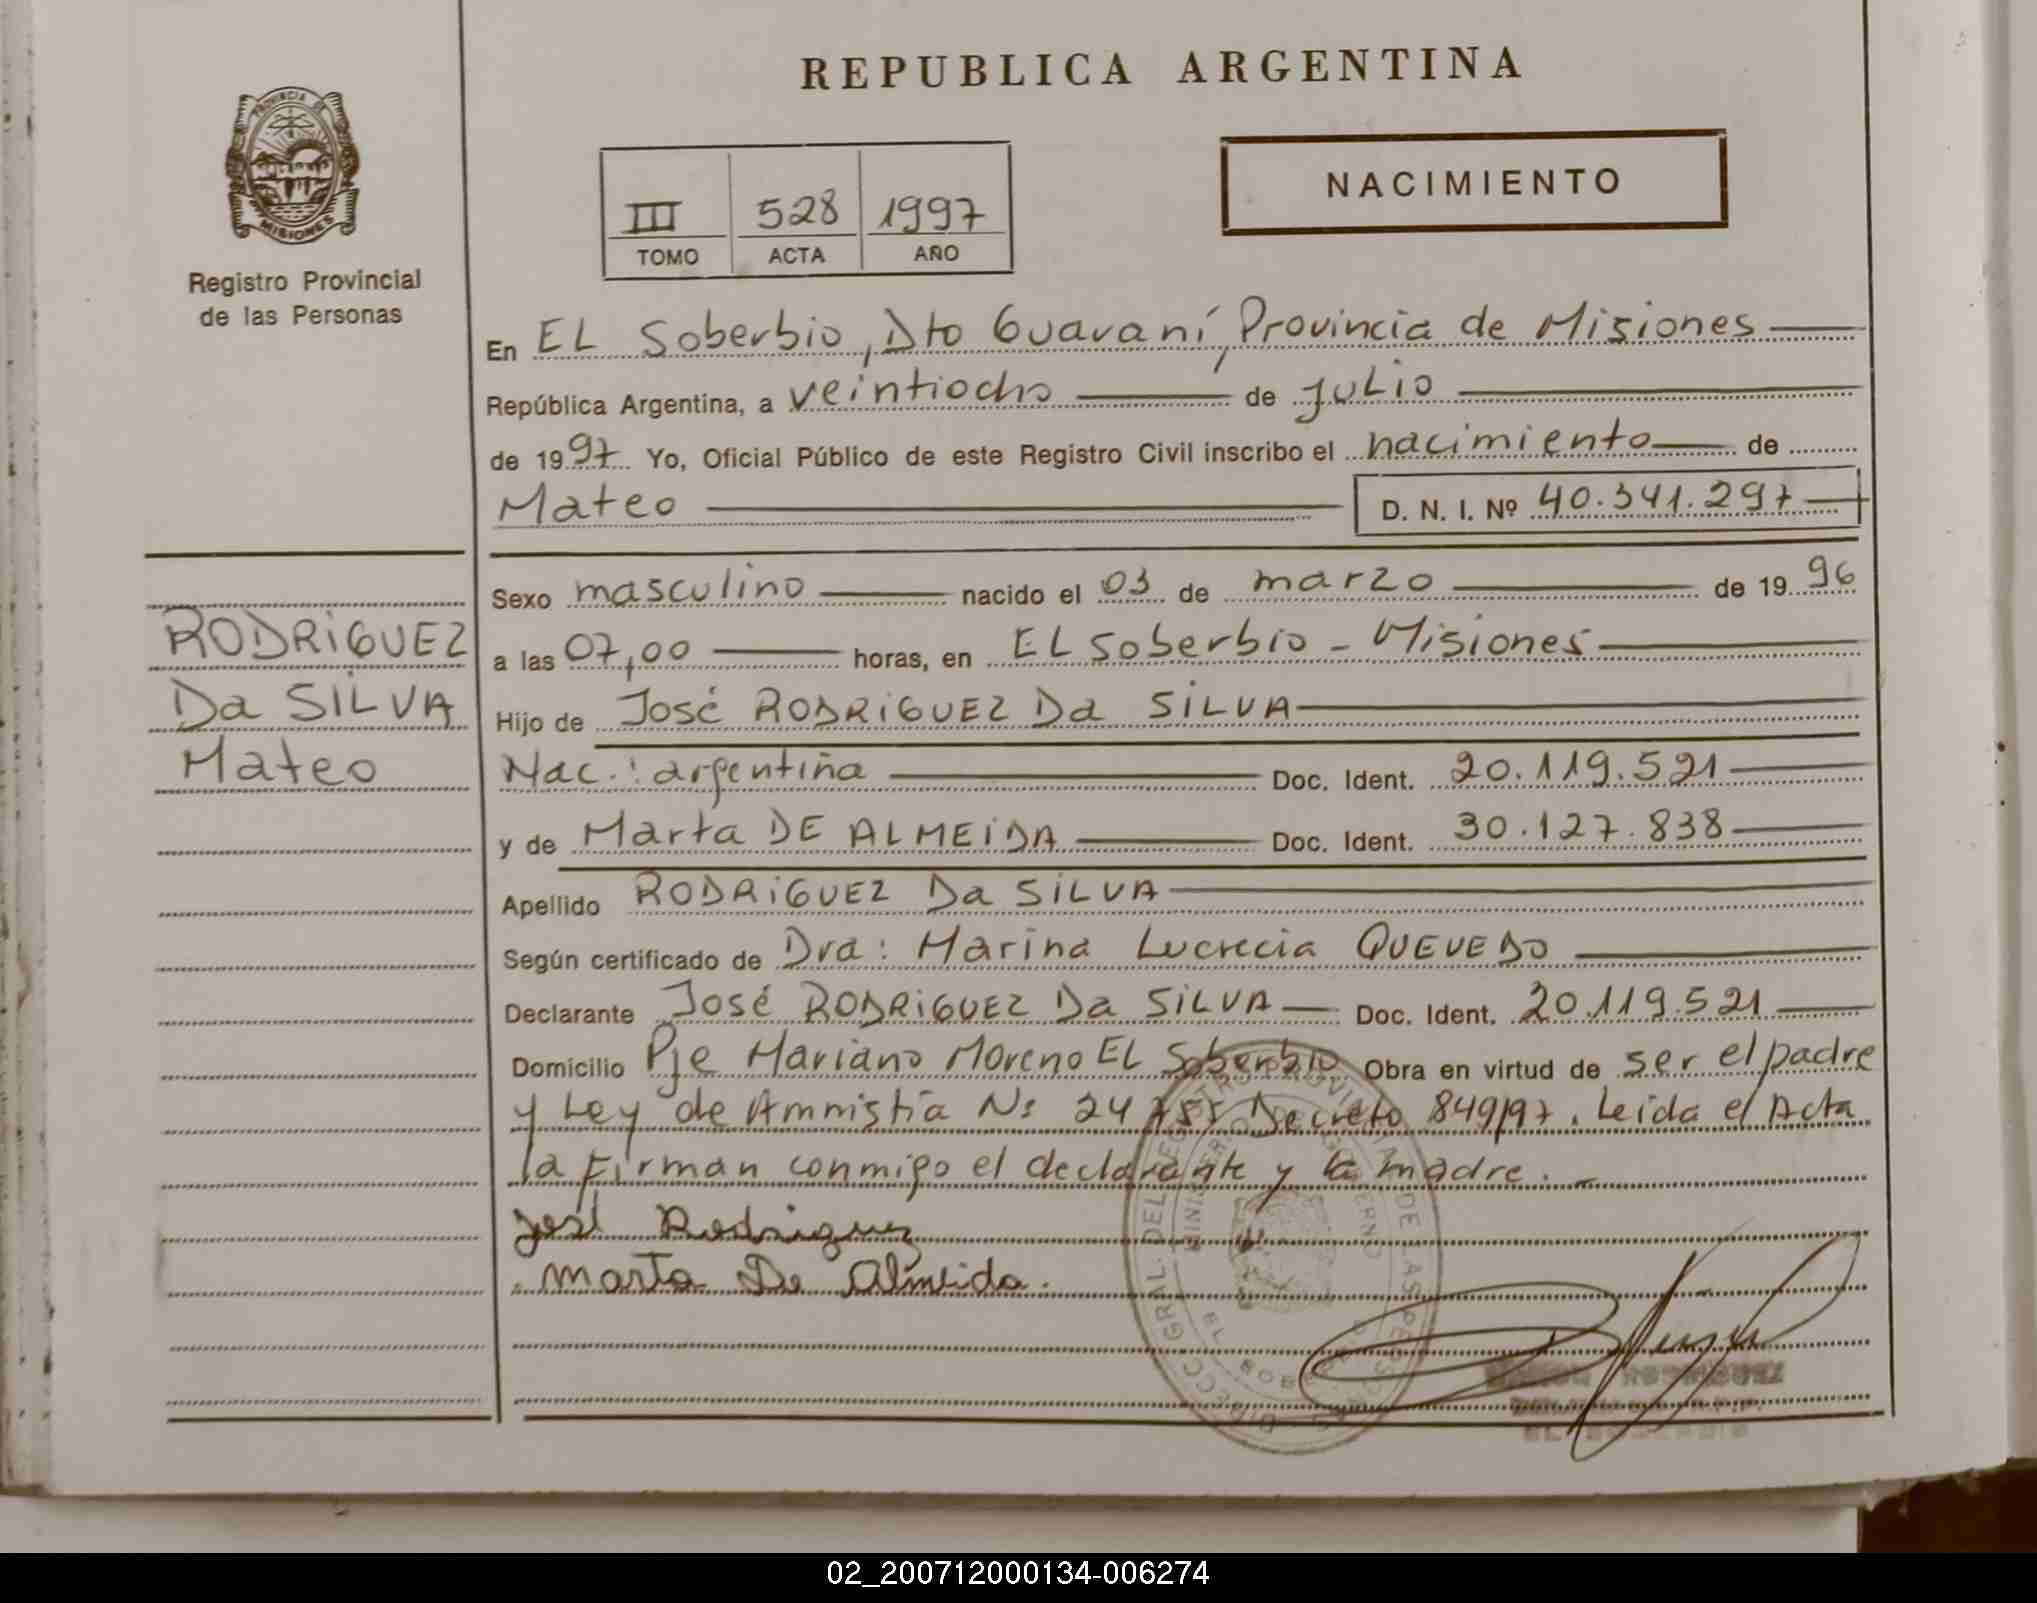 REPUBLICA ARGENTINA
PROVINCIA DE
MISIONES
Registro Provincial
de las Personas
III 528 1997
TOMO ACTA AÑO
NACIMIENTO
En EL Soberbio, Dto Guaraní, Provincia de Misiones
República Argentina, a veintiocho de julio
de 1997 Yo, Oficial Público de este Registro Civil inscribo el nacimiento de
Mateo D. N. I. Nº 40.341.297
RODRIGUEZ
Da SILVA
Mateo
Sexo masculino nacido el 03 de marzo de 1996
a las 07,00 horas, en EL Soberbio - Misiones
Hijo de José RODRIGUEZ Da SILVA
Nac.: argentina Doc. Ident. 20.119.521
y de Marta DE ALMEIDA Doc. Ident. 30.127.838
Apellido RODRIGUEZ Da SILVA
Según certificado de Dra: Marina Lucrecia QUEVEDO
Declarante José RODRIGUEZ Da SILVA Doc. Ident. 20.119.521
Domicilio Pje Mariano Moreno EL Soberbio Obra en virtud de ser el padre
y Ley de Amnistía Nº 24755 Decreto 849/97. Leída el Acta
la firman conmigo el declarante y la madre. -
José Rodriguez
Marta De Almeida.
RODRIGUEZ
EL SOBERBIO
02_200712000134-006274